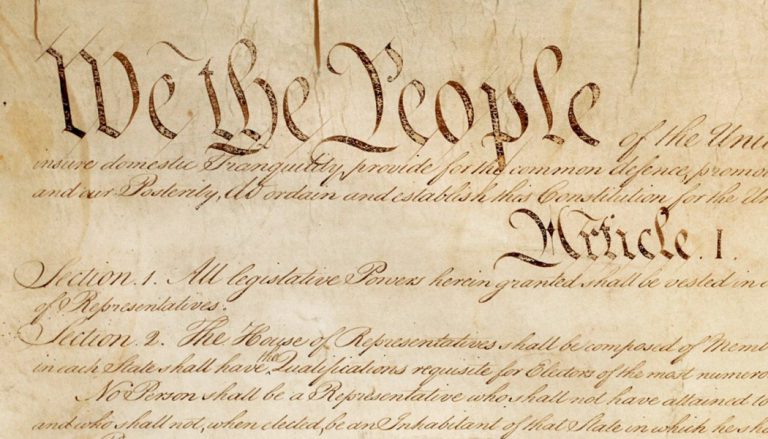 We the People of the Unit
insure domestic Tranquility, provide for the common defence, promo
and our Posterity, do ordain and establish this Constitution for the Un
Article. I.
Section. 1. All legislative Powers herein granted shall be vested in a
of Representatives.
Section. 2. The House of Representatives shall be composed of Memb
in each State shall have the Qualifications requisite for Electors of the most numero
No Person shall be a Representative who shall not have attained to
and who shall not, when elected, be an Inhabitant of that State in which he sha